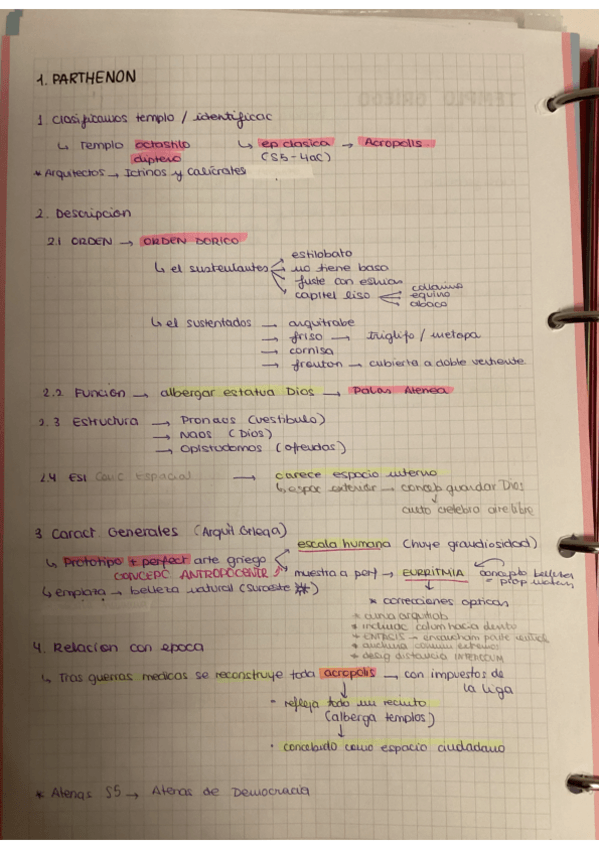 1. PARTHENON
1. Clasificamos templo / identificac
↳ Templo octostilo ↳ ep clasica → Acropolis
diptero (S5-4aC)
* Arquitectos → Ictinos y Calícrates
2. Descripcion
2.1 ORDEN → ORDEN DORICO
↳ el sustentantes estilobato
no tiene basa
fuste con estrias
capitel liso collarino
equino
abaco
↳ el sustentados → arquitrabe
→ friso → triglifo / metopa
→ cornisa
→ fronton → cubierta a doble vertiente
2.2 Función → albergar estatua Dios → Palas Atenea
2.3 Estructura → Pronaos (vestibulo)
→ Naos (Dios)
→ Opistodomos (ofrendas)
2.4 Espacial → carece espacio interno
↳ espac exterior → conceb guardar Dios
culto celebra aire libre
3 Caract Generales (Arquit Griega)
↳ Prototipo + perfect arte griego escala humana (huye grandiosidad)
CONCEPC ANTROPOCENTR muestra a perf → EURRITMIA concepto belleza
↳ emplaza → belleza natural (Suroeste)
* correcciones opticas
* curva arquitrab
* inclinac colum hacia dentro
* ENTASIS → ensancham parte
* anchura column extremos
* desig distancia INTERCOLUM
4. Relacion con epoca
↳ Tras guerras medicas se reconstruye toda acropolis → con impuestos de
la liga
• refleja todo un recinto
(alberga templos)
• concebido como espacio ciudadano
* Atenas S5 → Atenas de Democracia